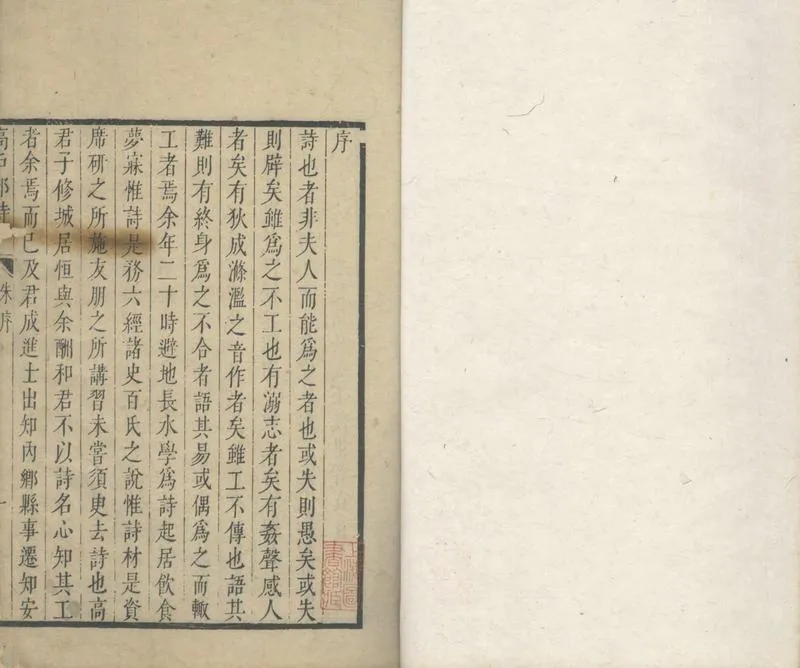 序
詩也者非夫人而能爲之者也或失則愚矣或失
則辟矣雖爲之不工也有溺志者矣有姦聲感人
者矣有狄成滌濫之音作者矣雖工不傳也語其
難則有終身爲之不合者語其易或偶爲之而輙
工者焉余年二十時避地長水學爲詩起居飲食
夢寐惟詩是務六經諸史百氏之說惟詩材是資
席研之所施友朋之所講習未嘗須臾去詩也高
君子修城居恒與余酬和君不以詩名心知其工
者余焉而已及君成進士出知內鄉縣事遷知安
高戶部詩
朱序
一